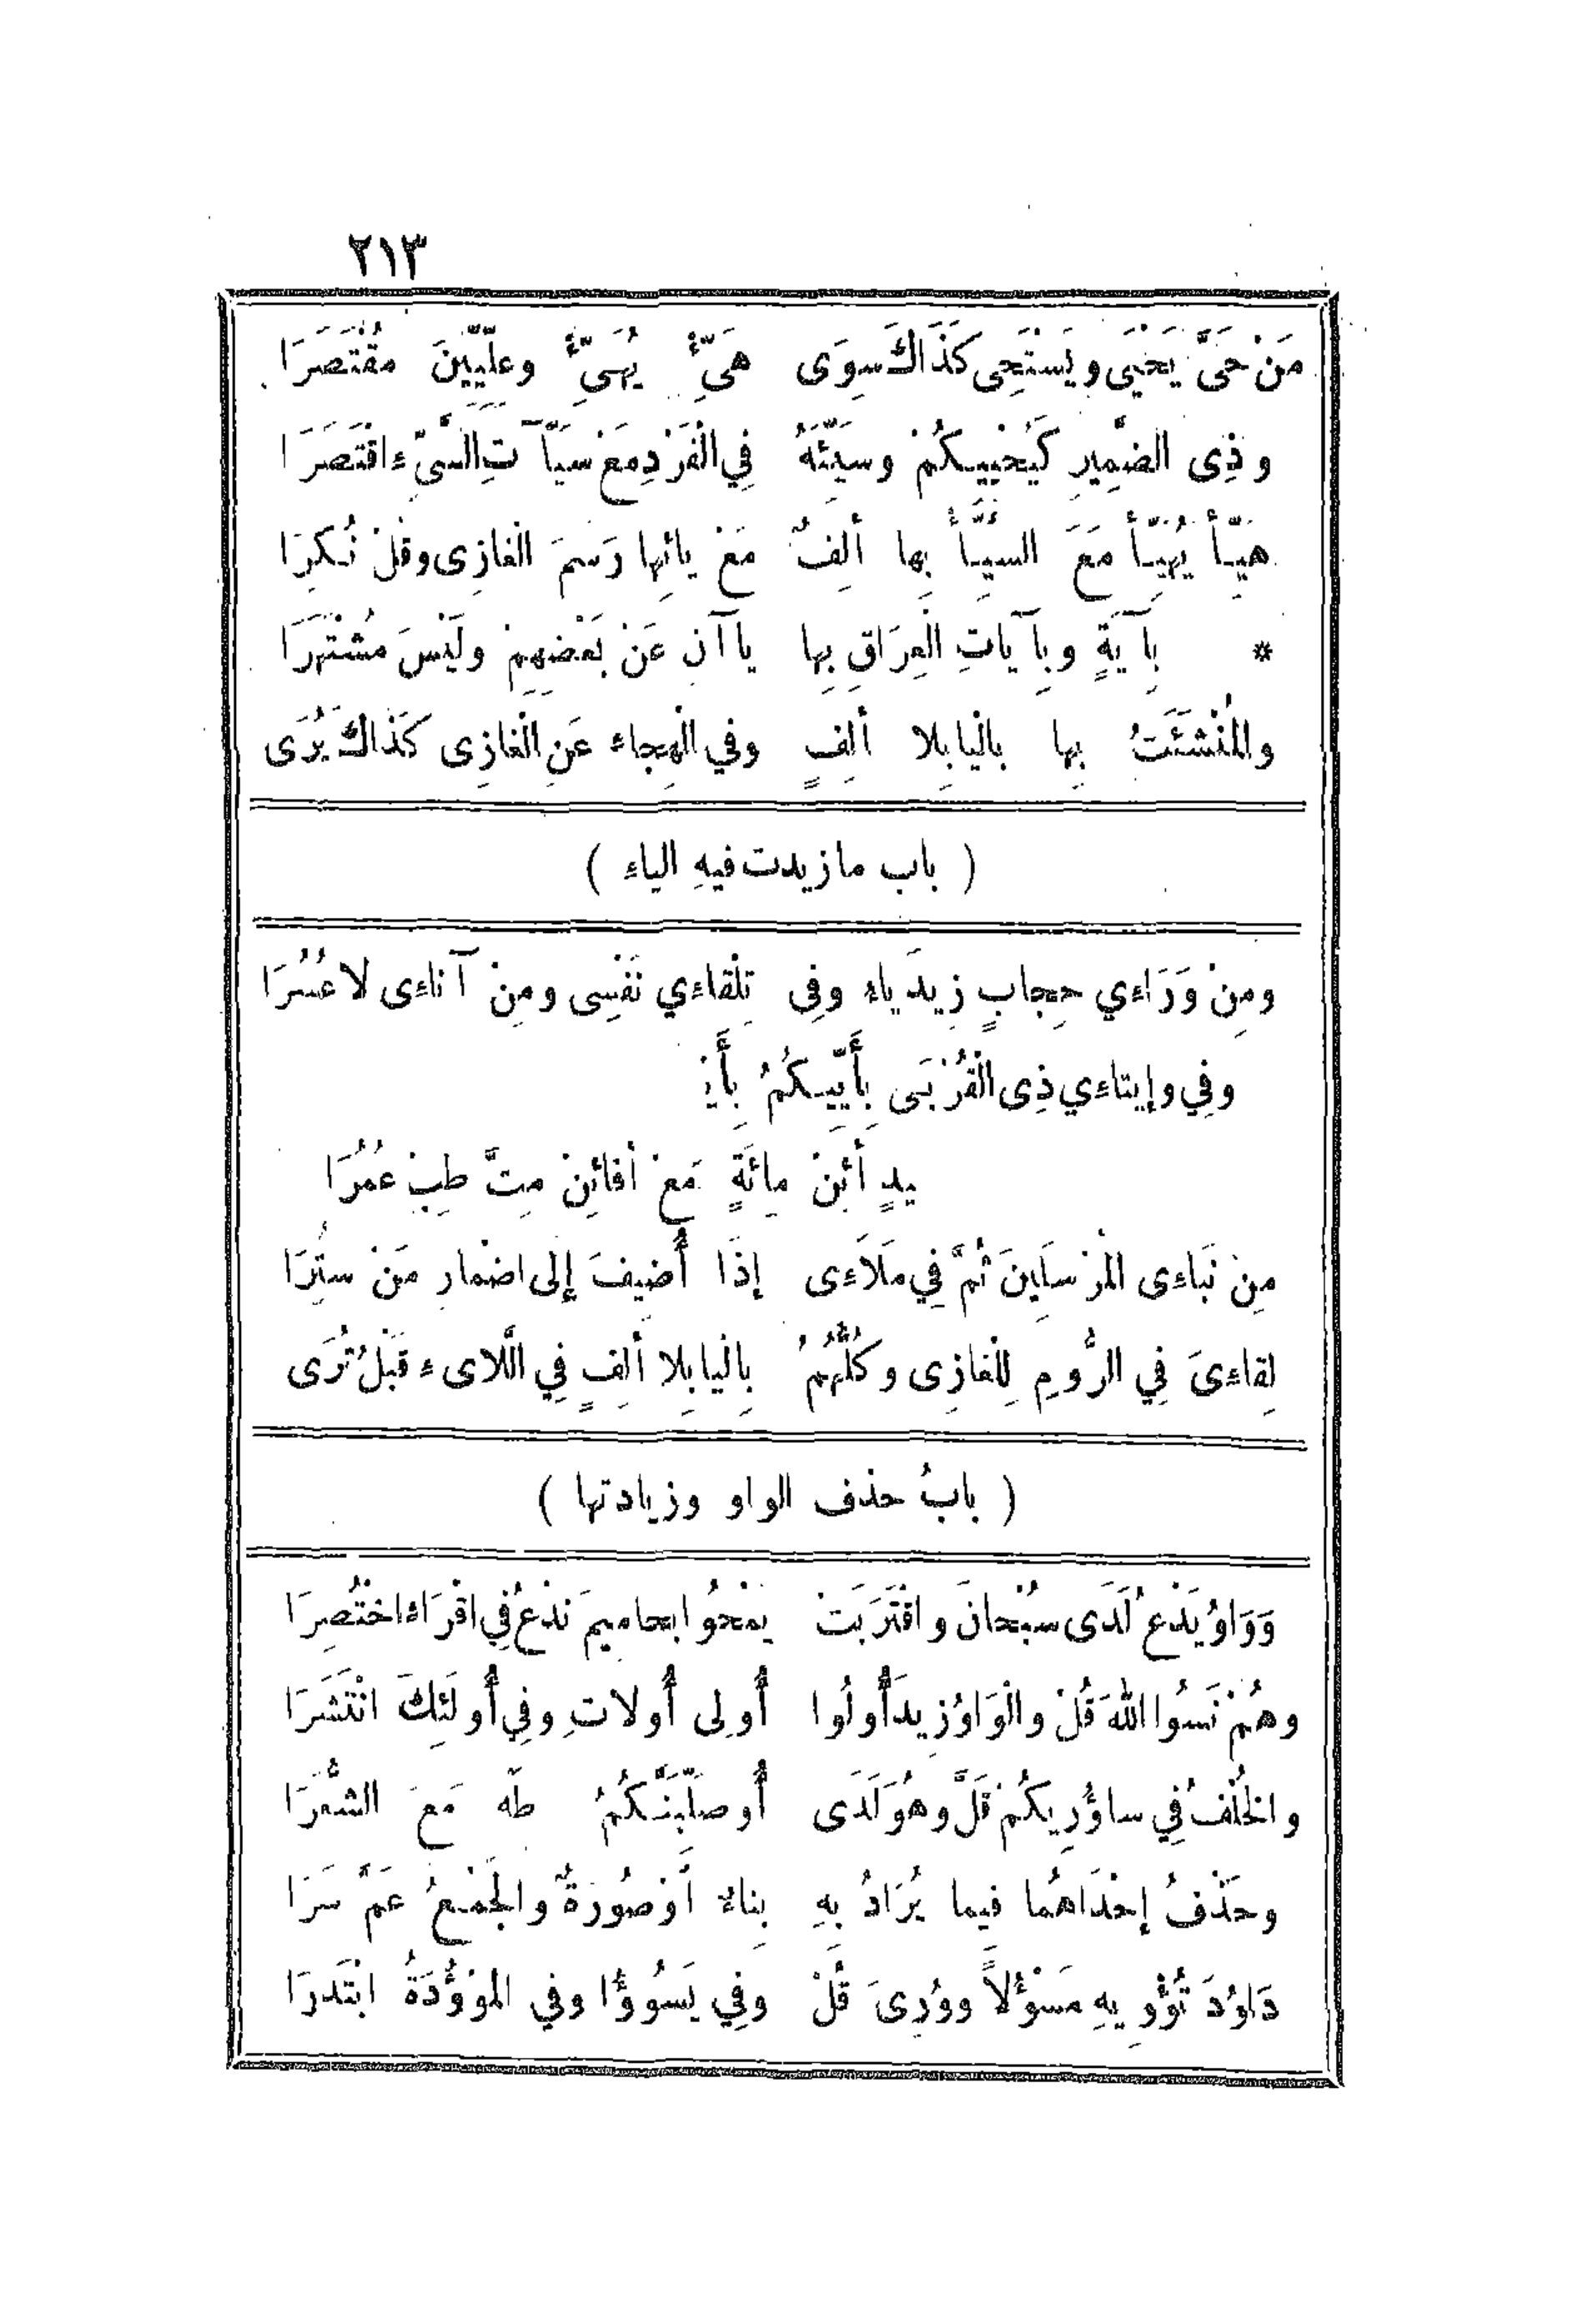 ٢١٣
مَنْ حَىَّ يَحْيَى ويَسْتَحِى كَذَاكَ سِوَى هَىِّئْ يُهَىِّئْ وعِلِّيِّينَ مُقْتَصَرَا
وذِى الضَّمِيرِ كَيُحْيِيكُمْ وسَيِّئَةٌ فِي الْفَرْدِ مَعْ سَيِّآتِ السَّىِّءِ اقْتَصَرَا
هَيِّأْ يُهَيِّأْ مَعَ السَّيِّأْ بِها ألِفٌ مَعْ يائِها رَسَمَ الغازِى وقَدْ نُكِرَا
* بِآيَةٍ وبِآياتِ الْعِرَاقِ بِها يا آنِ عَنْ بَعْضِهِمْ ولَيْسَ مُشْتَهَرَا
والمُنْشَئَتُ بِها بالْيا بِلا ألِفٍ وفي الْهِجاءِ عَنِ الْغازِى كَذَاكَ يُرَى
( باب ما زيدت فيهِ الياء )
ومِنْ وَرَاءي حِجابٍ زِيدَ ياءٌ وفِى تِلْقاءي نَفْسِى ومِنْ آناءى لا عُسُرَا
وفِي وإيتاءي ذِى الْقُرْبَى بِأَيِّيكُمُ بِأَيْـ
يدٍ أئِنْ مِائَةٍ مَعْ أفائِنْ مِتَّ طِبْ عُمُرَا
مِنْ نَباءى المُرْسَلِينَ ثُمَّ فِي مَلَاءى إذَا أُضِيفَ إلى اضْمارِ مَنْ سُتِرَا
لِقاءىَ فِي الرُّومِ لِلْغازِى وكُلُّهُمُ بِالْيا بِلا ألِفٍ فِي اللَّاىء قَبْلُ تُرَى
( بابُ حذف الواو وزيادتها )
وَوَاوُ يَدْعُ لَدَى سُبْحانَ واقْتَرَبَتْ يَمْحُوا بحاميمَ نَدْعُ فِي اقْرَاءْ اخْتُصِرَا
وهُمْ نَسُوا اللهَ قُلْ والْوَاوُ زِيدَ أُولُوا أُولِى أُولاتِ وفِي أُولَئِكَ انْتَشَرَا
والْخُلْفُ فِي ساؤُرِيكُمْ قَلَّ وهُوَ لَدَى أُوصَلِّبَنَّكُمُ طَه مَعَ الشُّعَرَا
وحَذْفُ إحْدَاهُما فيما يُزَادُ بِهِ بِناءً أَوْ صُورَةٌ والْجَمْعُ عَمَّ سَرَا
دَاوُدَ تُؤْوِيهِ مَسْؤُلاً ووُرِىَ قُلْ وفِي يَسُوؤُا وفي المَوْؤُدَةُ ابْتَدَرَا